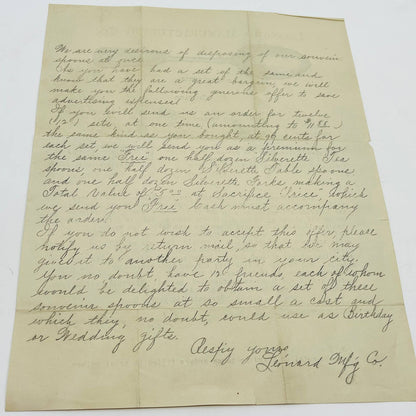 We are very desirous of disposing of our souvenir
spoons at once.
As you have had a set of the same and
know that they are a great bargain, we will
make you the following generous offer to save
advertising expenses:
If you will send us an order for twelve
(12) sets, at one time (amounting to
the same kind as you bought, at 96 cents for
each set, we will send you as a premium for
the same Free one half dozen Silverette Tea
spoons, one half dozen Silverette Table spoons
and one half dozen Silverette Forks making a
Total Value of at Sacrifice Price, which
we send you Free. Cash must accompany
the order.
If you do not wish to accept this offer please
notify us by return mail, so that we may
give it to another party in your city.
You no doubt have 12 friends, each of whom
would be delighted to obtain a set of these
souvenir spoons at so small a cost and
which they, no doubt, could use as Birthday
or Wedding gifts.
Respfy yours,
Leonard Mfg Co.